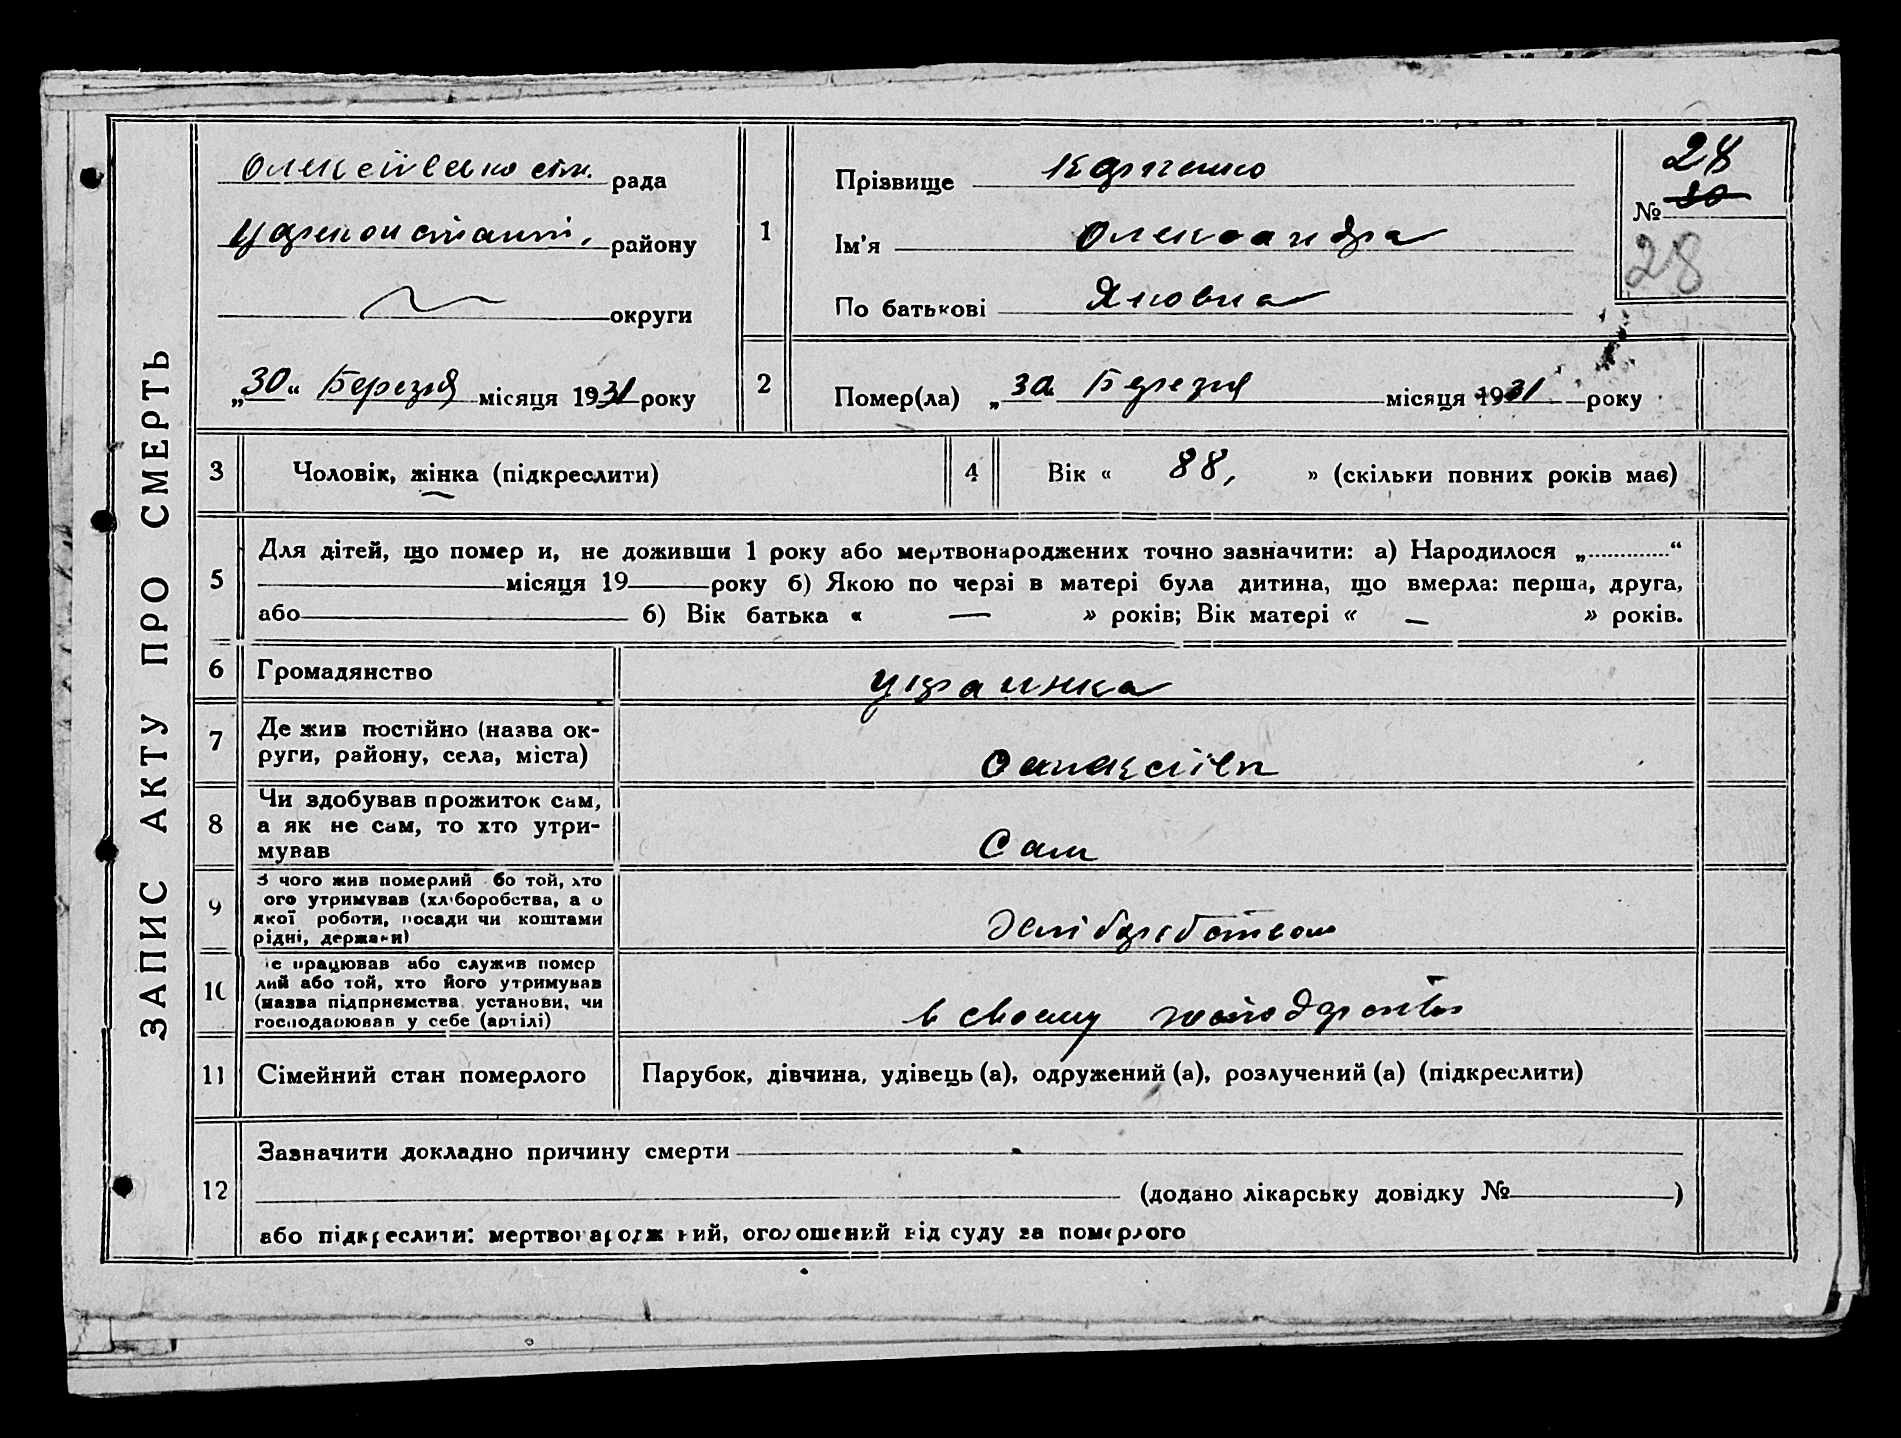 ЗАПИС АКТУ ПРО СМЕРТЬ
рада
району
округи
„30“ Березня місяця 1931 року
1
Прізвище
Ім'я Олександра
По батькові Яковна
28
№ 30
28
2
Помер(ла) „30 Березня місяця 1931 року
3 Чоловік, жінка (підкреслити)
4 Вік « 88, » (скільки повних років має)
5
Для дітей, що помер и, не доживши 1 року або мертвонароджених точно зазначити: а) Народилося „............“
місяця 19 року б) Якою по черзі в матері була дитина, що вмерла: перша, друга,
або б) Вік батька « — » років; Вік матері « — » років.
6 Громадянство українка
7
Де жив постійно (назва ок-
руги, району, села, міста)
8
Чи здобував прожиток сам,
а як не сам, то хто утри-
мував
Сам
9
З чого жив померлий бо той, хто
ого утримував (хліборобства, а о
якої роботи, посади чи коштами
рідні, держави)
10
е працював або служив помер
лий або той, хто його утримував
(назва підприємства установи, чи
господарював у себе (артілі)
в своему
11 Сімейний стан померлого Парубок, дівчина, удівець (а), одружений (а), розлучений (а) (підкреслити)
12
Зазначити докладно причину смерти
(додано лікарську довідку № )
або підкреслити: мертвонароджений, оголошений від суду за померлого